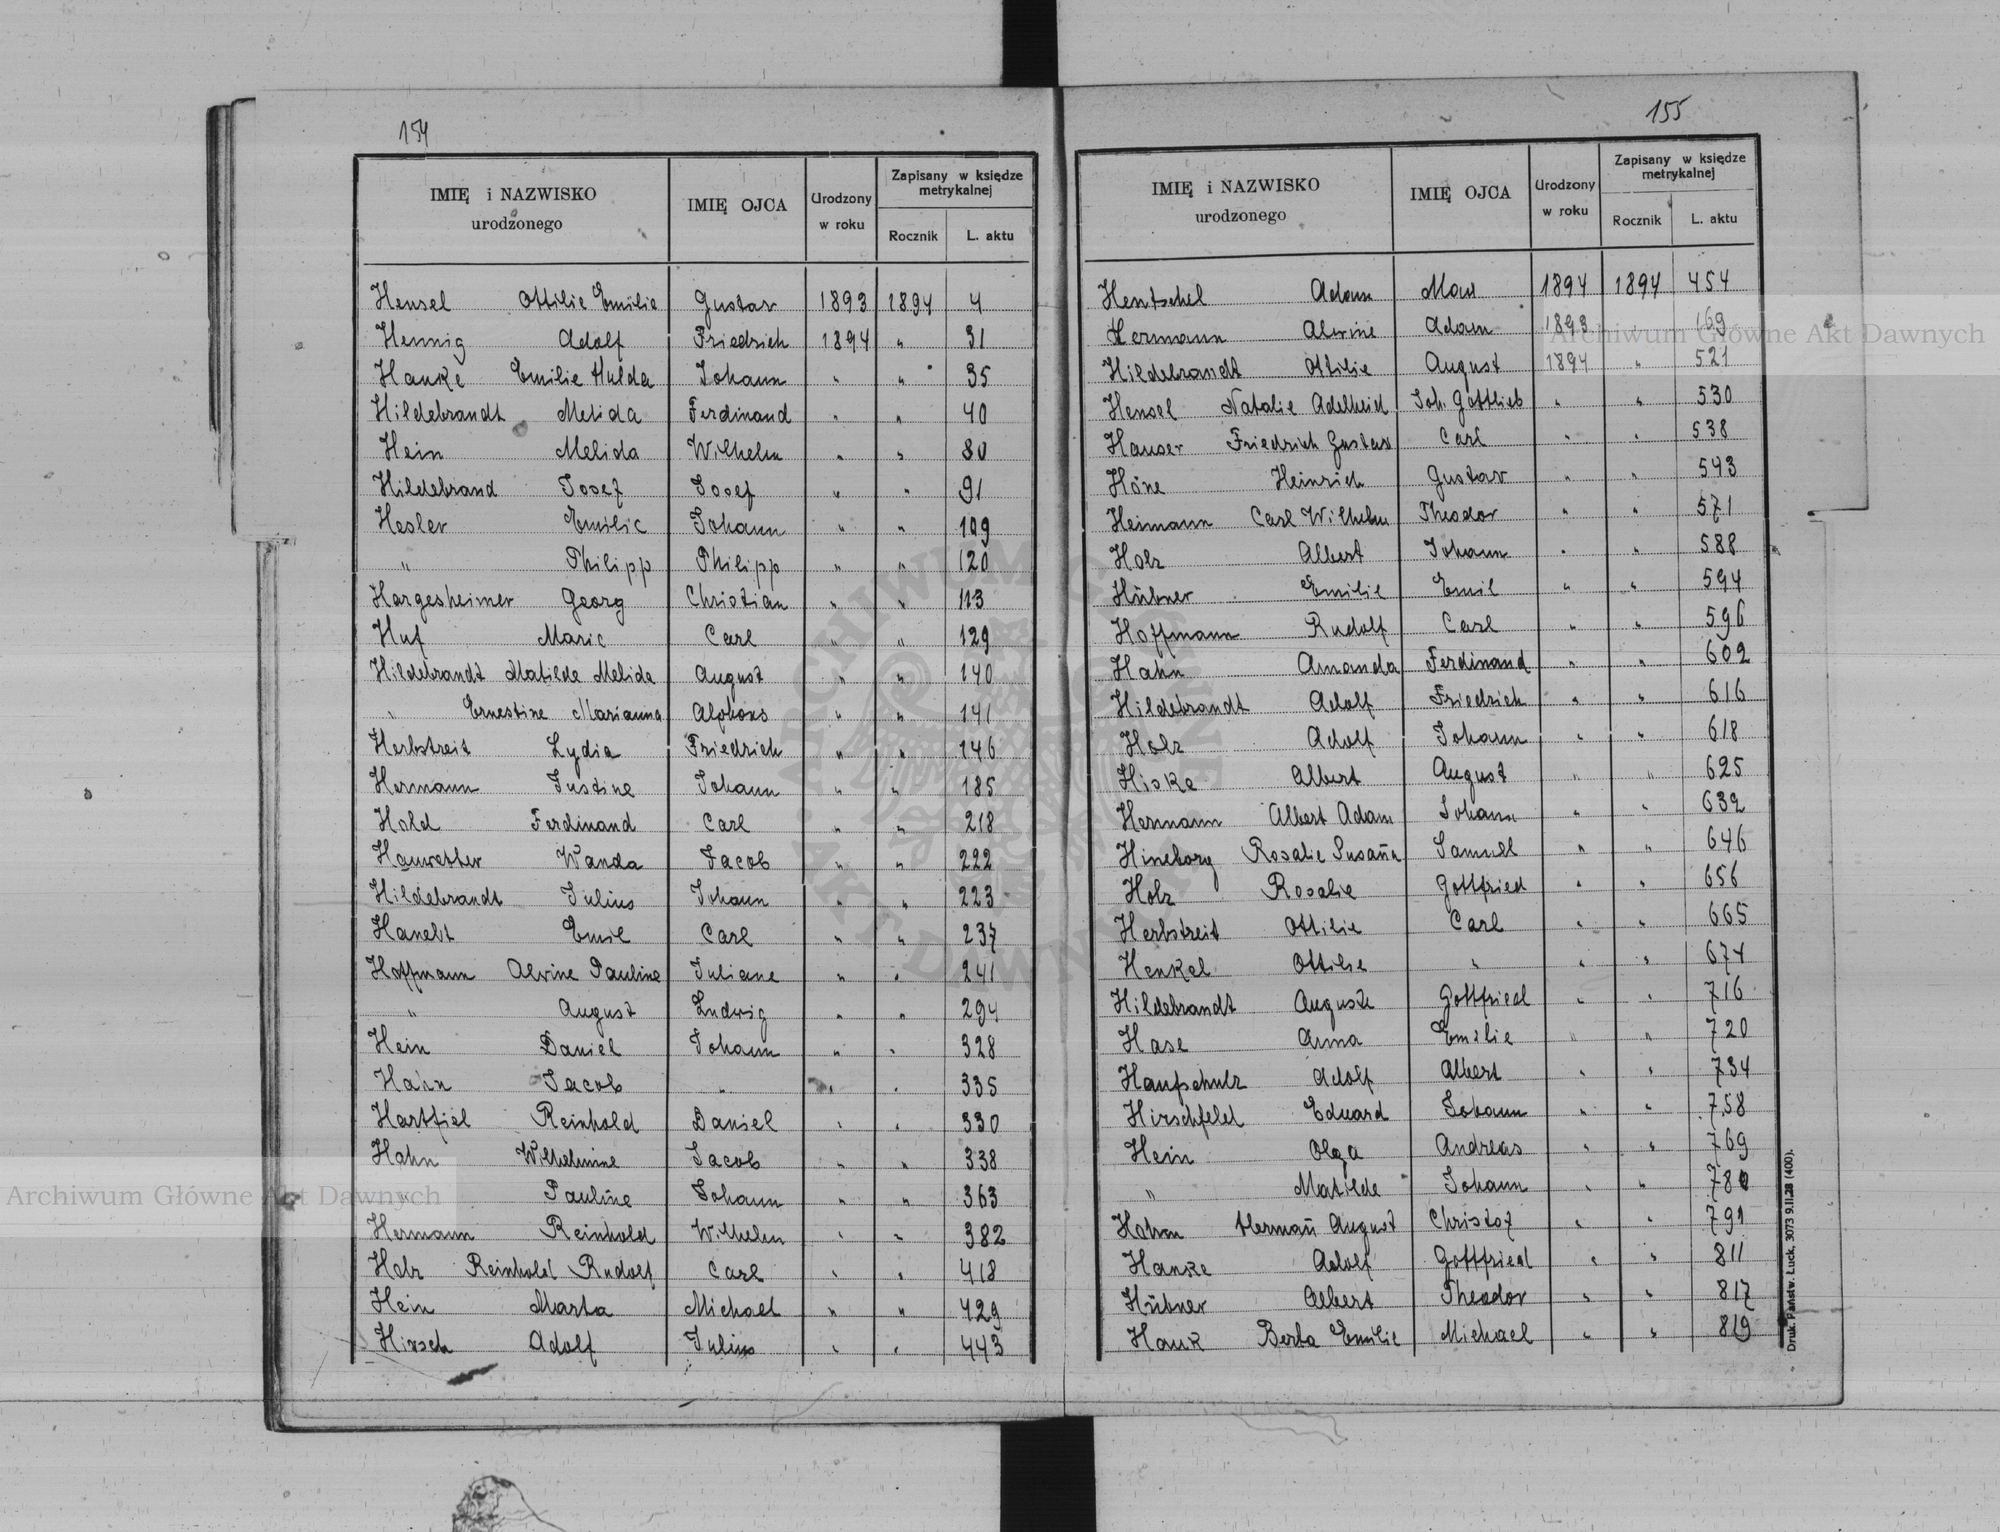 154
IMIĘ i NAZWISKO urodzonego IMIĘ OJCA Urodzony w roku Zapisany w księdze metrykalnej Rocznik L. aktu
Hensel Ottilie Emilie Gustav 1893 1894 4
Hennig Adolf Friedrich 1894 " 31
Hanke Emilie Hulda Johann " " 35
Hildebrandt Melida Ferdinand " " 40
Hein Melida Wilhelm " " 80
Hildebrand Josef Josef " " 91
Hesler Emilie Johann " " 109
" Philipp Philipp " " 120
Hargesheimer Georg Christian " " 113
Huf Marie Carl " " 129
Hildebrandt Matilde Melida August " " 140
" Ernestine Marianna Alphons " " 141
Herbstreit Lydia Friedrich " " 146
Hermann Justine Johann " " 185
Hold Ferdinand Carl " " 218
Wanda Jacob " " 222
Hildebrandt Julius Johann " " 223
Hanelt Emil Carl " " 237
Hoffmann Alvine Pauline Juliane " " 241
" August Ludwig " " 294
Hein Daniel Johann " " 328
Hain Jacob " " " 335
Harttiel Reinhold Daniel " " 330
Hahn Wilhelmine Jacob " " 338
" Pauline Johann " " 363
Hermann Reinhold Wilhelm " " 382
Holz Reinhold Rudolf Carl " " 418
Hein Marta Michael " " 429
Hirsch Adolf Julius " " 443
155
IMIĘ i NAZWISKO urodzonego IMIĘ OJCA Urodzony w roku Zapisany w księdze metrykalnej Rocznik L. aktu
Hentschel Adam 1894 1894 454
Hermann Alvine Adam 1893 " 169
Hildebrandt Ottilie August 1894 " 521
Hensel Natalie Adelheid Joh. Gottlieb " " 530
Hauser Friedrich Gustav Carl " " 538
Höne Heinrich Gustav " " 543
Heimann Carl Wilhelm Theodor " " 571
Holz Albert Johann " " 588
Hübner Emilie Emil " " 594
Hoffmann Rudolf Carl " " 596
Hahn Amanda Ferdinand " " 602
Hildebrandt Adolf Friedrich " " 616
Holz Adolf Johann " " 618
Hiske Albert August " " 625
Hermann Albert Adam Johann " " 632
Hineborg Rosalie Susaña Samuel " " 646
Holz Rosalie Gottfried " " 656
Herbstreit Ottilie Carl " " 665
Henkel Ottilie " " " 674
Hildebrandt Auguste Gottfried " " 716
Hase Anna Emilie " " 720
Haufschulz Adolf Albert " " 734
Hirschfeld Eduard Johann " " 758
Hein Olga Andreas " " 769
" Matilde Johann " " 780
Hahn Hermañ August Christof " " 791
Hanke Adolf Gottfried " " 811
Hübner Albert Theodor " " 817
Hauk Berta Emilie Michael " " 819
Druk. Państw. Łuck, 3073 9.II.28 (400).
Archiwum Główne Akt Dawnych
Archiwum Główne Akt Dawnych
ARCHIWUM GŁÓWNE AKT DAWNYCH